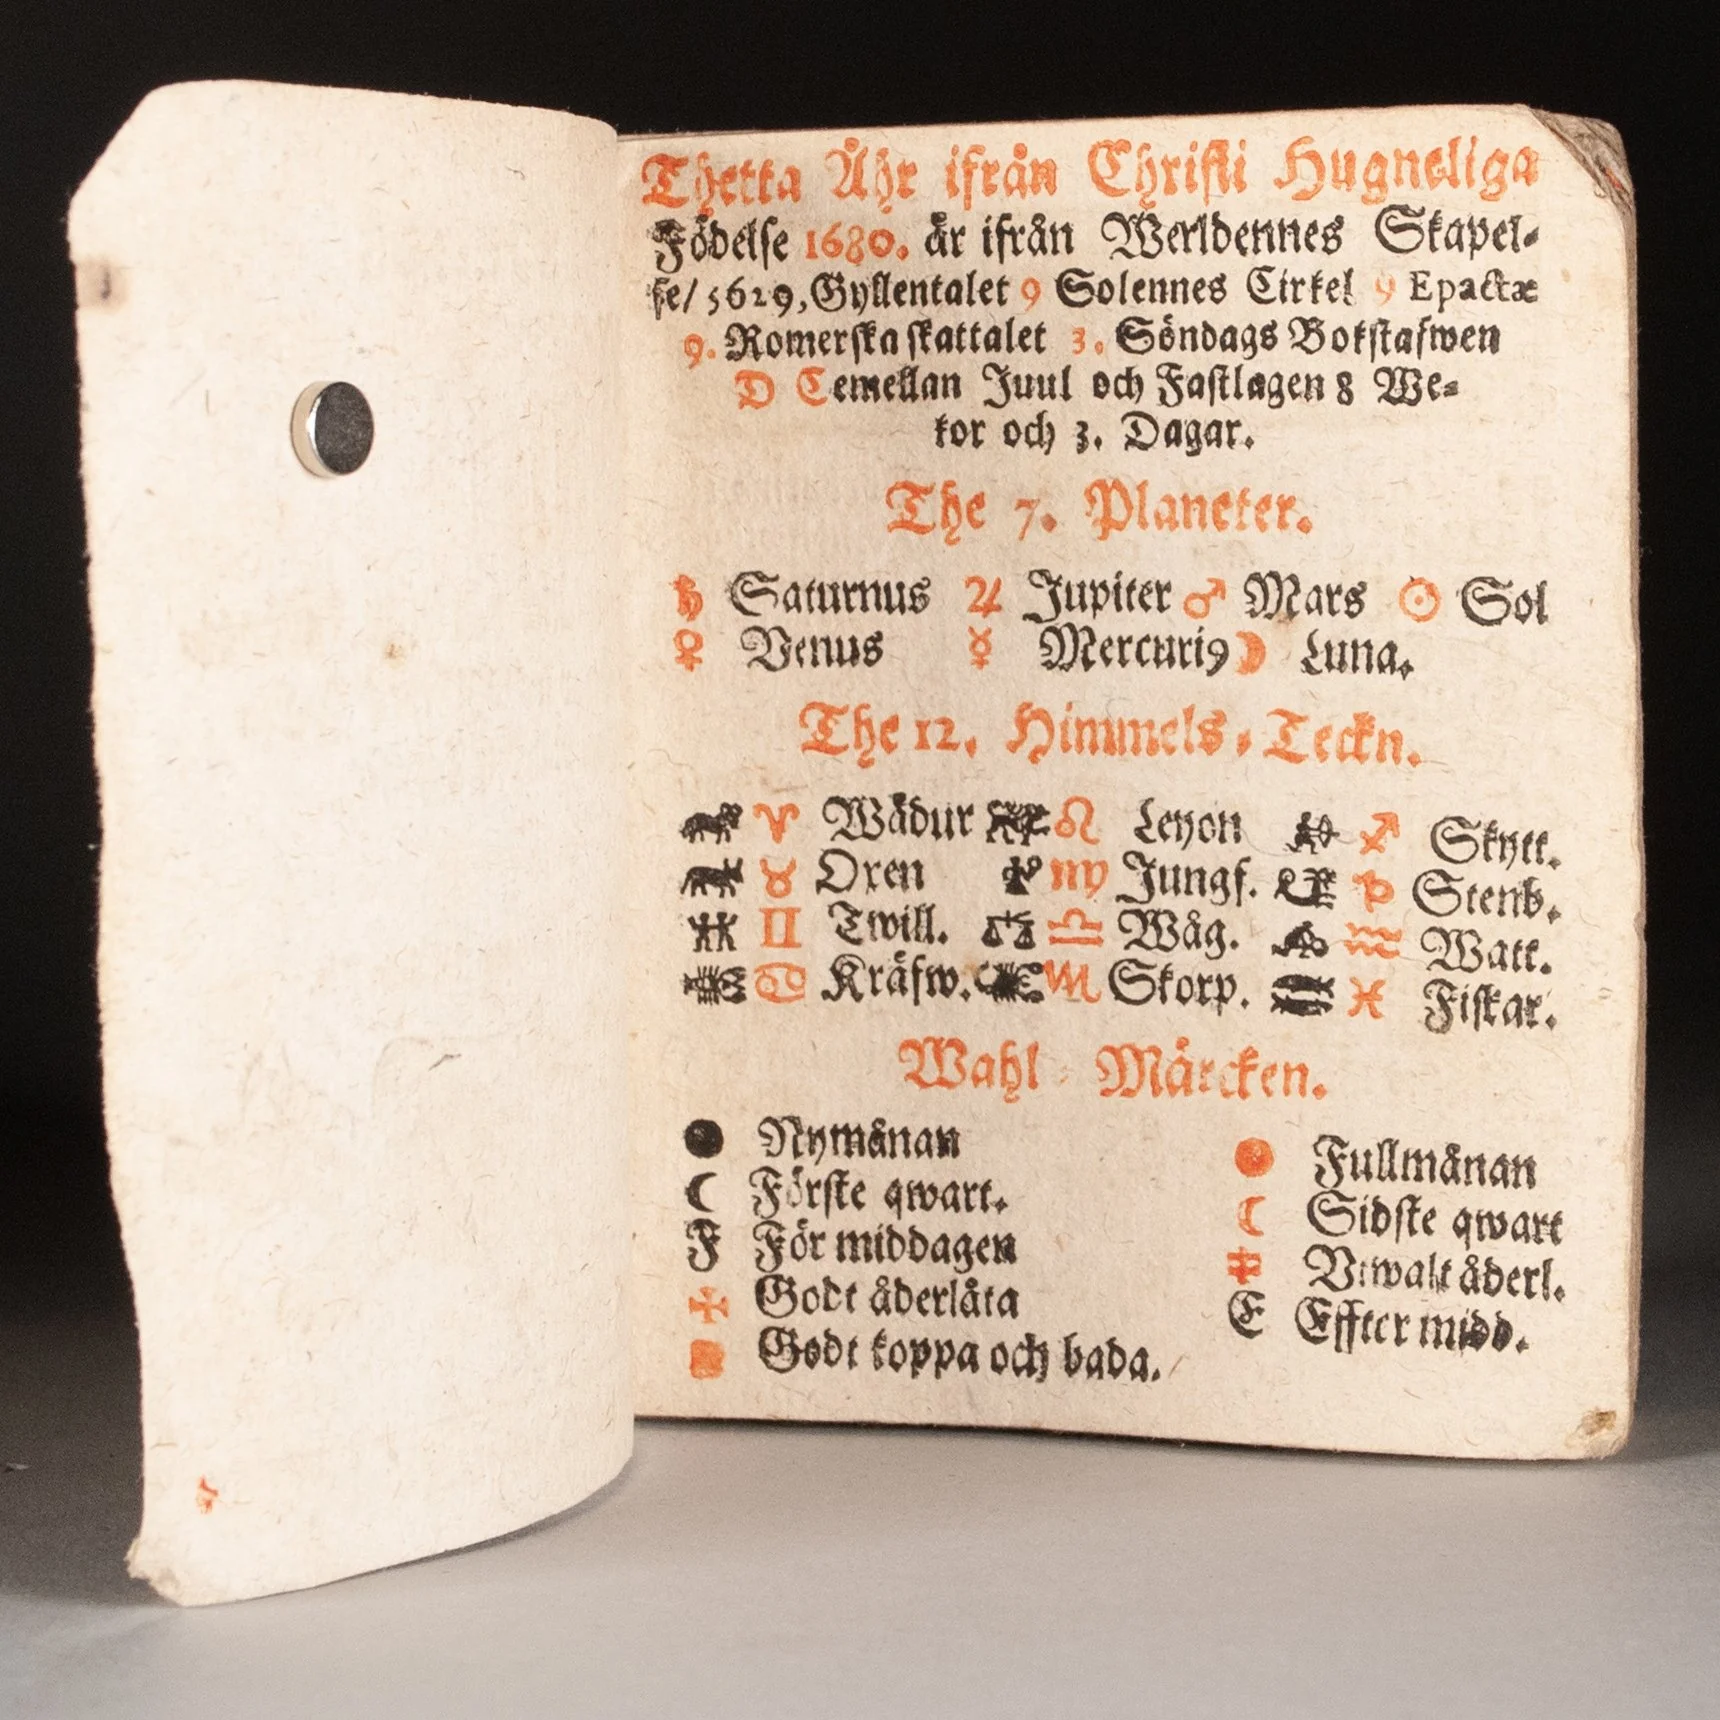 Thetta Åhr ifrån Christi Hugneliga
Födelse 1680. är ifrån Werldennes Skapel-
se/ 5629, Gyllentalet 9 Solennes Cirkel 9 Epactæ
9. Romerska skattalet 3. Söndags Bokstafwen
D C emellan Juul och Fastlagen 8 We-
kor och 3. Dagar.
The 7. Planeter.
♄ Saturnus ♃ Jupiter ♂ Mars ☉ Sol
♀ Venus ☿ Mercuri9 ☽ Luna.
The 12. Himmels-Teckn.
♈ Wädur ♌ Leyon ♐ Skytt.
♉ Oxen ♍ Jungf. ♑ Stenb.
♊ Twill. ♎ Wåg. ♒ Watt.
♋ Kräfw. ♏ Skorp. ♓ Fiskar.
Wahl-Märcken.
● Nymånan ● Fullmånan
☾ Förste qwart. ☾ Sidste qwart
F För middagen Vtwalt åderl.
✠ Godt åderlåta E Effter midd.
■ Godt koppa och bada.